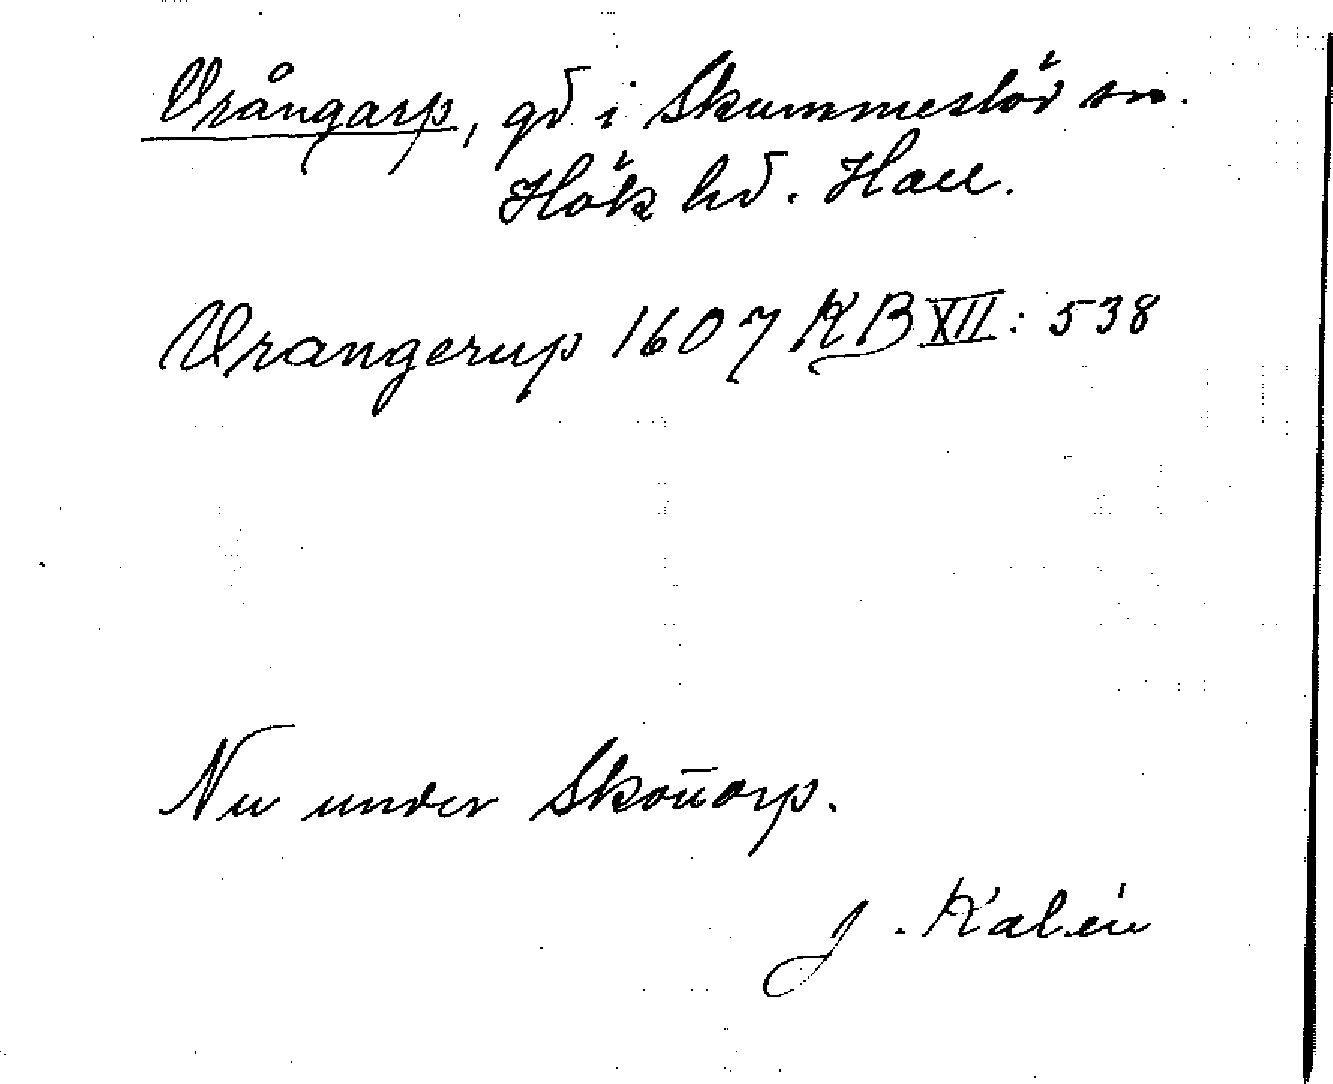 Vrångarp, gd i Skummeslöv sn.
Hök hd. Hall.
Vrangerup 1607 KB XII: 538
Nu under Skottorp.
J. Kalén